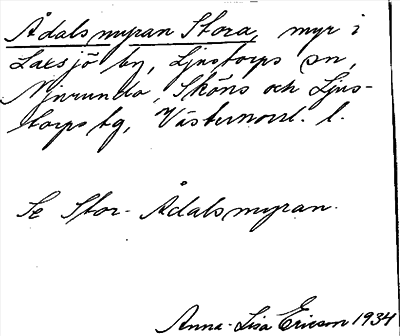 Ådalsmyran Stora, myr i
Laxsjö by, Ljustorps sn,
Njurunda, Sköns och Ljus-
torps tg, Västernorrl. l.
Se Stor-Ådalsmyran.
Anna-Lisa Ericson 1934